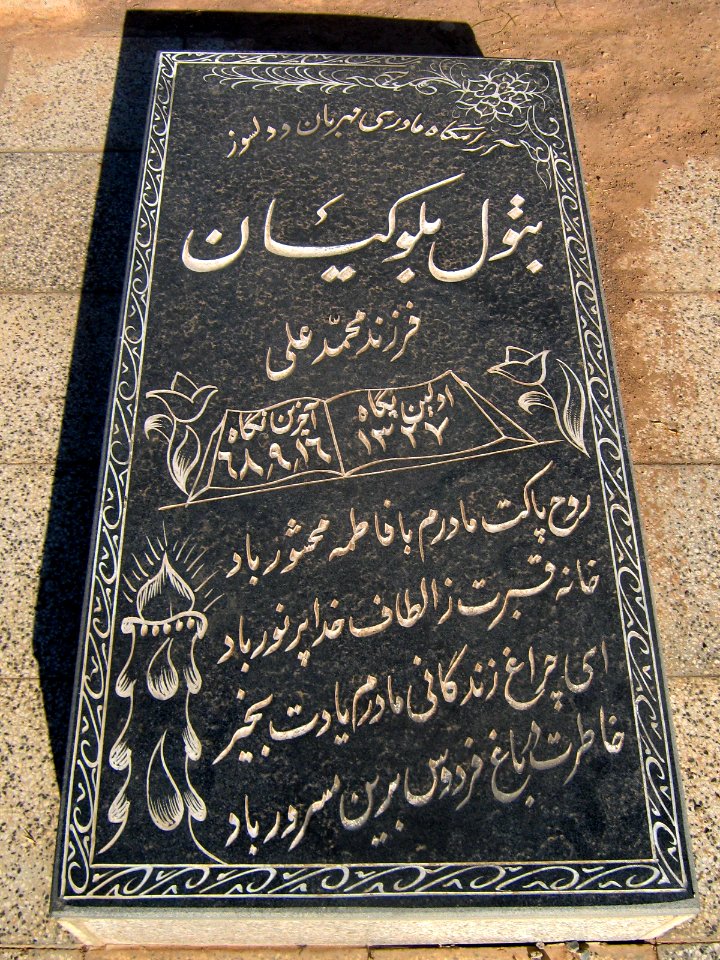 آرامگاه مادری مهربان و دلسوز
بتول بلوکیان
فرزند محمّد علی
اولین نگاه
۱۳۲۷
آخرین نگاه
۶۸٫۹٫۱۶
روح پاکت مادرم با فاطمه محشور باد
خانه قبرت ز الطاف خدا پر نور باد
ای چراغ زندگانی مادرم یادت بخیر
خاطرت در باغ فردوس برین مسرور باد